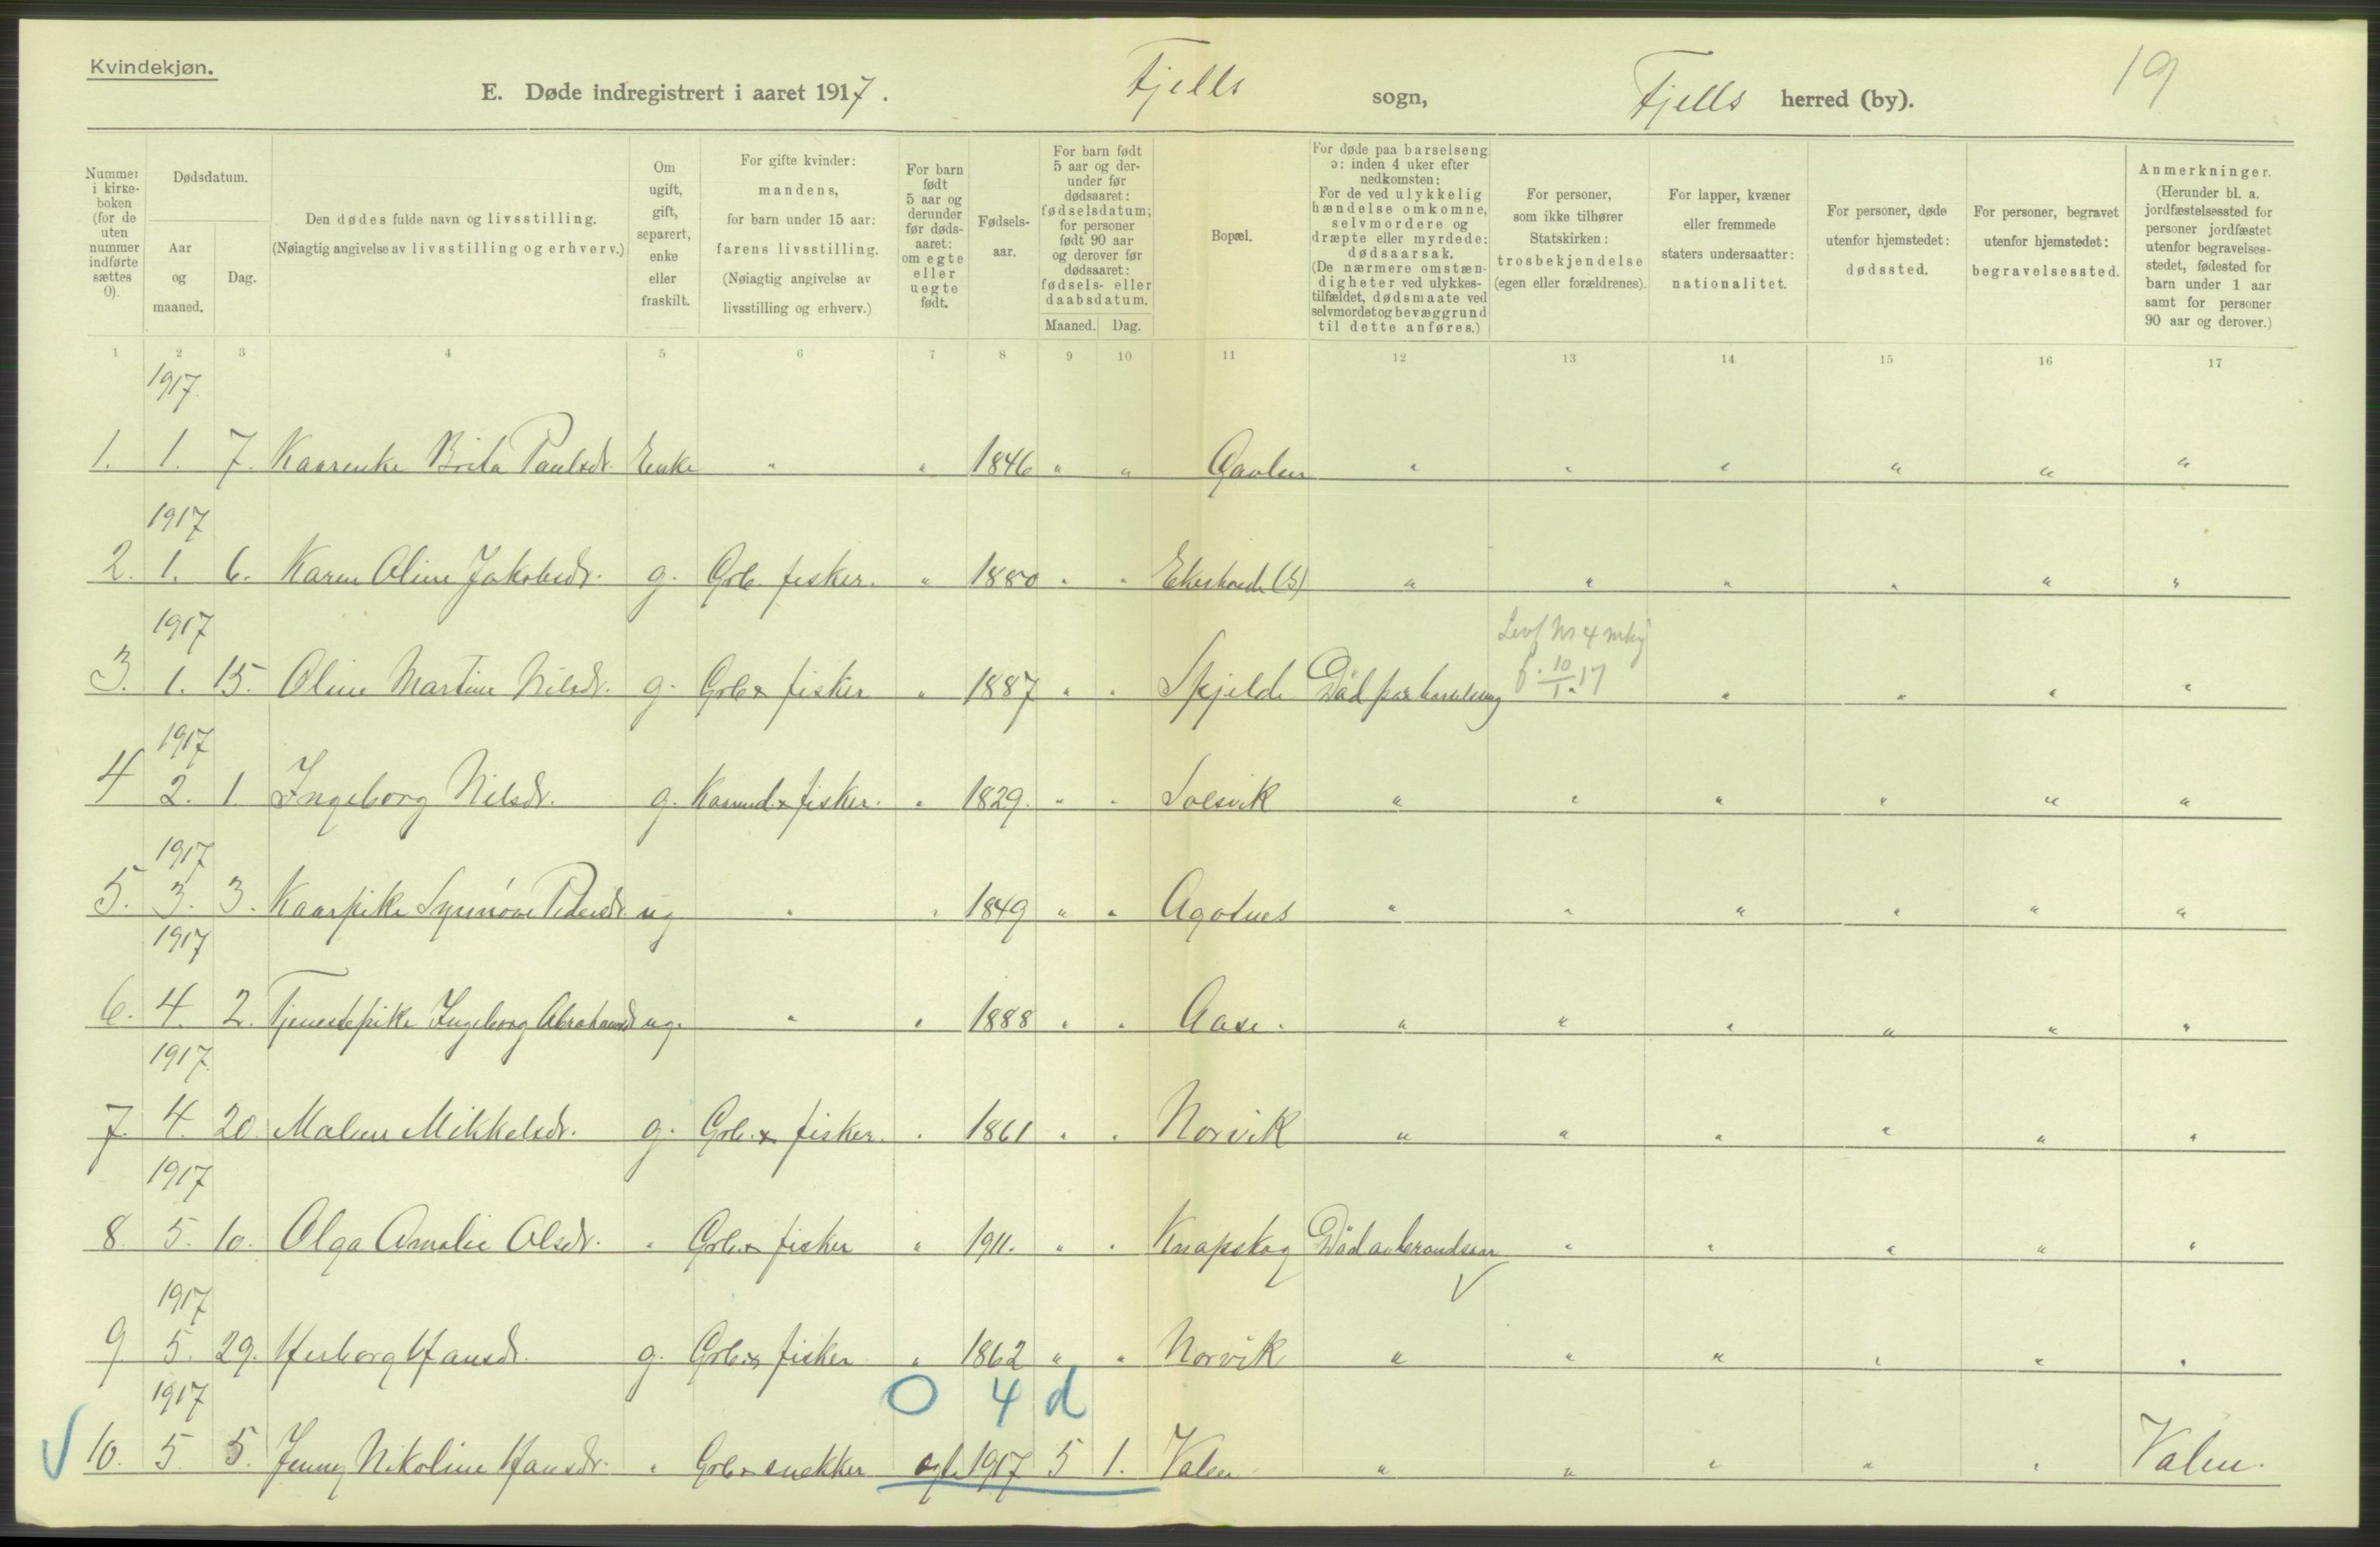 Kvindekjøn.
E. Døde indregistrert i aaret 1917. Fjells sogn, Fjells herred (by). 19
Nummer i kirke-boken (for de uten nummer indførte sættes 0).
Dødsdatum.
Aar og maaned.
Dag.
Den dødes fulde navn og livsstilling.
(Nøiagtig angivelse av livsstilling og erhverv.)
Om ugift, gift, separert, enke eller fraskilt.
For gifte kvinder: mandens, for barn under 15 aar: farens livsstilling. (Nøiagtig angivelse av livsstilling og erhverv.)
For barn født 5 aar og derunder før døds-aaret: om egte eller uegte født.
Fødsels-aar.
For barn født 5 aar og der-under før dødsaaret: fødselsdatum; for personer født 90 aar og derover før dødsaaret: fødsels- eller daabsdatum.
Maaned. Dag.
Bopæl.
For døde paa barselseng ɔ: inden 4 uker efter nedkomsten: For de ved ulykkelig hændelse omkomne, selvmordere og dræpte eller myrdede: dødsaarsak. (De nærmere omstæn-digheter ved ulykkes-tilfældet, dødsmaate ved selvmordet og bevæggrund til dette anføres.)
For personer, som ikke tilhører Statskirken: trosbekjendelse (egen eller forældrenes).
For lapper, kvæner eller fremmede staters undersaatter: nationalitet.
For personer, døde utenfor hjemstedet: dødssted.
For personer, begravet utenfor hjemstedet: begravelsessted.
Anmerkninger. (Herunder bl. a. jordfæstelsessted for personer jordfæstet utenfor begravelses-stedet, fødested for barn under 1 aar samt for personer 90 aar og derover.)
1 2 3 4 5 6 7 8 9 10 11 12 13 14 15 16 17
1917.
1. 1. 7. Kaarenke Brita Paulsdr. Enke " " 1846 " " " " " " " "
1917
2. 1. 6. Karen Oline Jakobsdr. g. Grb. fisker. " 1880 " " " " " " " "
1917
3. 1. 15. Oline Martine Nilsdr. g. Grb. x fisker " 1887 " " Skjelde Död paa barselseng " " " "
10/1. 17
1917
4 2. 1. Ingeborg Nilsdr. g. Kaarmd. x fisker. " 1829. " " Solsvik " " " " " "
1917
5. 3. 3. Kaarpike Synnöve Pedersdr. ug " " 1849 " " Agotnes " " " " " "
1917
6. 4. 2. Tjenestepike Ingeborg Abrahamsd ug. " " 1888 " " Aase. " " " " " "
1917.
7. 4. 20. Malene Mikkelsdr. g. Grb. x fisker. " 1861 " " Norvik " " " " " "
1917
8. 5. 10. Olga Amalie Olsdr. " Grb. x fisker " 1911. " " Knapskog Död av brandsaar " " " " "
1917
9. 5. 29. Herborg Hansdr. g. Grb. x fisker " 1862 " " Norvik " " " " " "
0 4 d
1917
10. 5. 5. Jenny Nikoline Hansdr. " Grb. x snekker egte 1917 5 1. Valen " " " " " Valen.